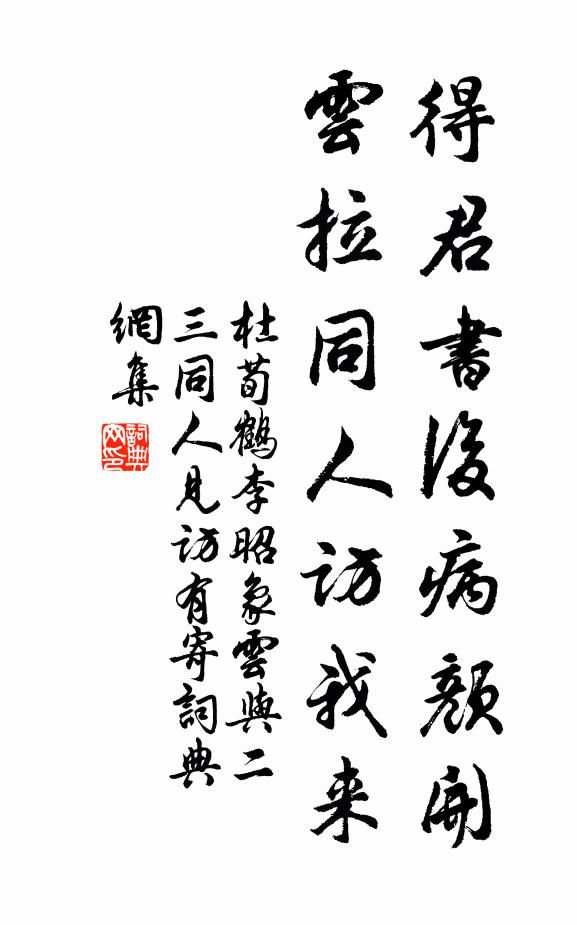 得君書後病顏開
雲拉同人訪我来
杜荀鶴李昭象雲與二
三同人見訪有寄詞典
網集
詞典網印